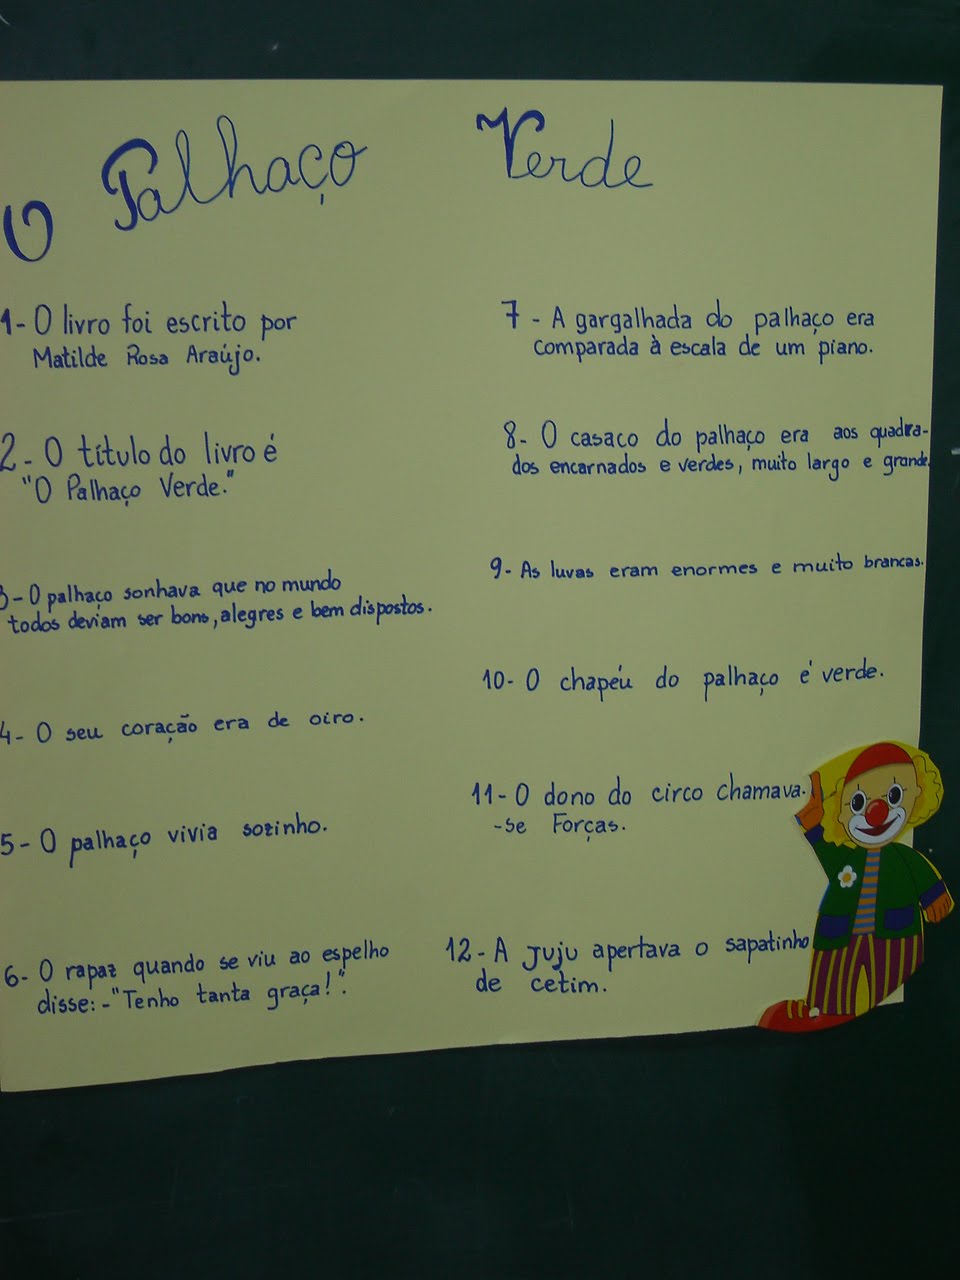 O Palhaço Verde
1- O livro foi escrito por
Matilde Rosa Araújo.
2- O título do livro é
"O Palhaço Verde."
3- O palhaço sonhava que no mundo
todos deviam ser bons, alegres e bem dispostos.
4- O seu coração era de oiro.
5- O palhaço vivia sozinho.
6- O rapaz quando se viu ao espelho
disse: -"Tenho tanta graça!".
7 - A gargalhada do palhaço era
comparada à escala de um piano.
8- O casaco do palhaço era aos quadra-
dos encarnados e verdes, muito largo e grande.
9- As luvas eram enormes e muito brancas.
10- O chapéu do palhaço é verde.
11- O dono do circo chamava-
-se Forças.
12- A Juju apertava o sapatinho
de cetim.